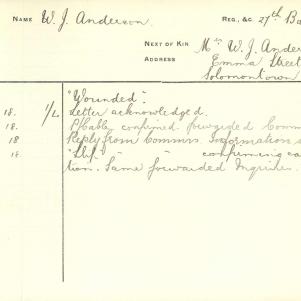 NAME W. J. Anderson. REG., &C. 27th Ba
NEXT OF KIN Mrs W. J. Ander
ADDRESS Emma Street
Solomontown
"Wounded".
18. 1/L Letter acknowledged.
18. P/Cable confirmed forwarded Comm
18 Reply from Commrs. Information s
18 " " confirming ca
tion. Same forwarded Inquirer.